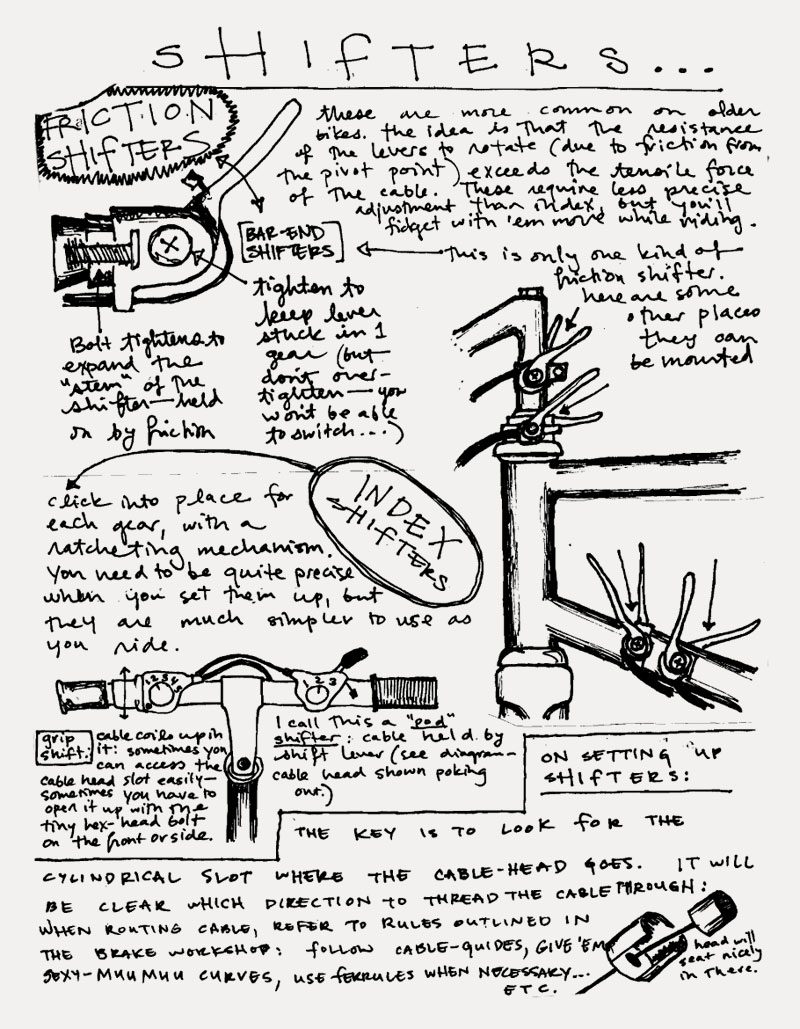 SHIFTERS...
FRICTION
SHIFTERS
these are more common on older
bikes. the idea is that the resistance
of the levers to rotate (due to friction from
the pivot point) exceeds the tensile force
of the cable. These require less precise
adjustment than index, but you'll
fidget with 'em more while riding.
[BAR-END
SHIFTERS]
This is only one kind of
friction shifter.
here are some
other places
they can
be mounted
tighten to
keep lever
stuck in 1
gear (but
don't over-
tighten—you
won't be able
to switch...)
Bolt tightens to
expand the
"stem" of the
shifter—held
on by friction
INDEX
SHIFTERS
click into place for
each gear, with a
ratcheting mechanism.
You need to be quite precise
when you set them up, but
they are much simpler to use as
you ride.
1 2 3 4 5
1 2 3
grip
shift:
cable coils up in
it: sometimes you
can access the
cable head slot easily—
sometimes you have to
open it up with one
tiny hex-head bolt
on the front or side.
I call this a "pod"
shifter: cable held by
shift lever (see diagram—
cable head shown poking
out.)
ON SETTING UP
SHIFTERS:
THE KEY IS TO LOOK FOR THE
CYLINDRICAL SLOT WHERE THE CABLE-HEAD GOES. IT WILL
BE CLEAR WHICH DIRECTION TO THREAD THE CABLE THROUGH:
WHEN ROUTING CABLE, REFER TO RULES OUTLINED IN
THE BRAKE WORKSHOP: FOLLOW CABLE-GUIDES, GIVE 'EM
SEXY-MUUMUU CURVES, USE FERRULES WHEN NECESSARY...
ETC.
head will
seat nicely
in there.